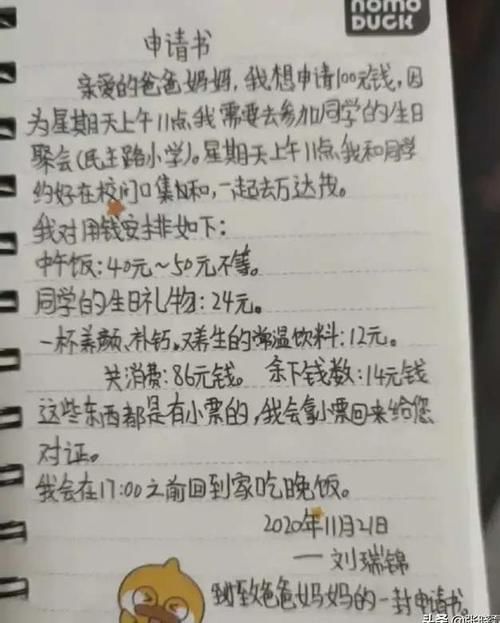 nomo
DUCK
申请书
亲爱的爸爸妈妈,我想申请100元钱,因
为星期天上午11点我需要去参加同学的生日
聚会(民主路小学)。星期天上午11点,我和同学
约好在校门口集合和,一起去万达茂。
我对用钱安排如下:
中午饭:40元~50元不等。
同学的生日礼物:24元。
一杯养颜、补钙,又养生的常温饮料:12元。
共消费:86元钱。 余下钱数:14元钱
这些东西都是有小票的,我会拿小票回来给您
对证。
我会在17:00之前回到家吃晚饭。
2020年11月21日
——刘瑞锦
致爸爸妈妈的一封申请书。
头条